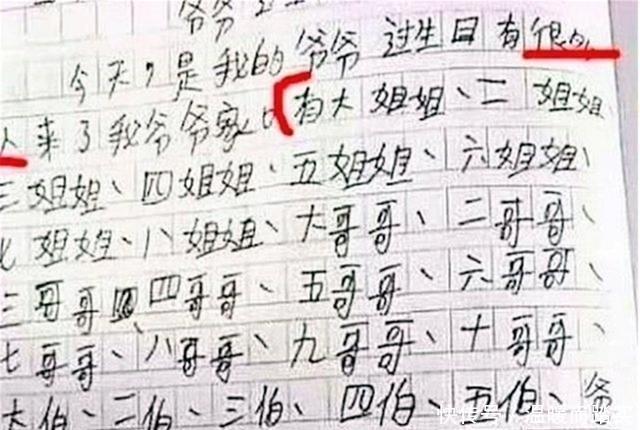 爷爷
今天，是我的爷爷过生日有很多
人来了我爷爷家，有大姐姐、二姐姐
三姐姐、四姐姐、五姐姐、六姐姐、
七姐姐、八姐姐、大哥哥、二哥哥、
三哥哥四哥哥、五哥哥、六哥哥、
七哥哥、八哥哥、九哥哥、十哥哥、
大伯、二伯、三伯、四伯、五伯、爷
快传号